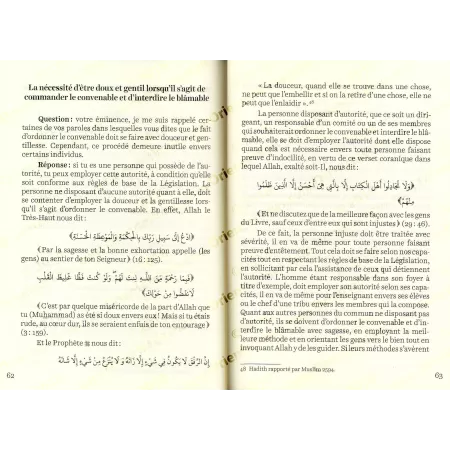 La nécessité d'être doux et gentil lorsqu'il s'agit de
commander le convenable et d'interdire le blâmable
Question : votre éminence, je me suis rappelé cer-
taines de vos paroles dans lesquelles vous dites que le fait
d'ordonner le convenable doit se faire avec douceur et gen-
tillesse. Cependant, ce procédé demeure inutile envers
certains individus.
Réponse : si tu es une personne qui possède de l'au-
torité, tu peux employer cette autorité, à condition qu'elle
soit conforme aux règles de base de la Législation. La
personne ne disposant d'aucune autorité quant à elle, doit
se contenter d'employer la douceur et la gentillesse lors-
qu'il s'agit d'ordonner le convenable. En effet, Allah le
Très-Haut nous dit :
﴿ادْعُ إِلَىٰ سَبِيلِ رَبِّكَ بِالْحِكْمَةِ وَالْمَوْعِظَةِ الْحَسَنَةِ﴾
﴾Par la sagesse et la bonne exhortation appelle (les
gens) au sentier de ton Seigneur﴿ (16 : 125).
﴿فَبِمَا رَحْمَةٍ مِنَ اللَّهِ لِنْتَ لَهُمْ وَلَوْ كُنْتَ فَظًّا غَلِيظَ الْقَلْبِ
لَانْفَضُّوا مِنْ حَوْلِكَ﴾
﴾C'est par quelque miséricorde de la part d'Allah que
tu (Muḥammad) as été si doux envers eux ! Mais si tu étais
rude, au cœur dur, ils se seraient enfuis de ton entourage﴿
(3 : 159).
Et le Prophète nous dit :
إِنَّ الرِّفْقَ لَا يَكُونُ فِي شَيْءٍ إِلَّا زَانَهُ وَلَا يُنْزَعُ مِنْ شَيْءٍ إِلَّا شَانَهُ
62
« La douceur, quand elle se trouve dans une chose,
ne peut que l'embellir et si on la retire d'une chose, elle ne
peut que l'enlaidir ».48
La personne disposant d'autorité, que ce soit un diri-
geant, un responsable d'un comité ou un de ses membres
qui souhaiterait ordonner le convenable et interdire le blâ-
mable, elle se doit d'employer l'autorité dont elle dispose
quand cela est nécessaire envers toute personne faisant
preuve d'indocilité, en vertu de ce verset coranique dans
lequel Allah, exalté soit-Il, dit :
﴿وَلَا تُجَادِلُوا أَهْلَ الْكِتَابِ إِلَّا بِالَّتِي هِيَ أَحْسَنُ إِلَّا الَّذِينَ ظَلَمُوا
مِنْهُمْ﴾
﴾Et ne discutez que de la meilleure façon avec les gens
du Livre, sauf ceux d'entre eux qui sont injustes﴿ (29 : 46).
De même, la personne injuste doit être traitée avec
sévérité, il en va de même pour toute personne faisant
preuve d'entêtement. Tout cela doit se faire selon nos capaci-
tés, tout en respectant les règles de base de la Législation,
en sollicitant par cela l'assistance de ceux qui détiennent
l'autorité. L'homme étant responsable de son foyer, par
exemple, doit employer son autorité selon ses capaci-
tés, il en va de même pour l'enseignant envers ses élèves
ou le chef d'une tribu envers les membres qui la compose.
Quant aux autres personnes du commun ne disposant pas
d'autorité, ils se doivent d'ordonner le convenable et d'in-
terdire le blâmable avec sagesse, en employant la meil-
leure méthode et en orientant les gens vers le bien tout en
invoquant Allah de les guider. Si leurs méthodes s'avèrent
48 Hadith rapporté par Muslim 2594.
63